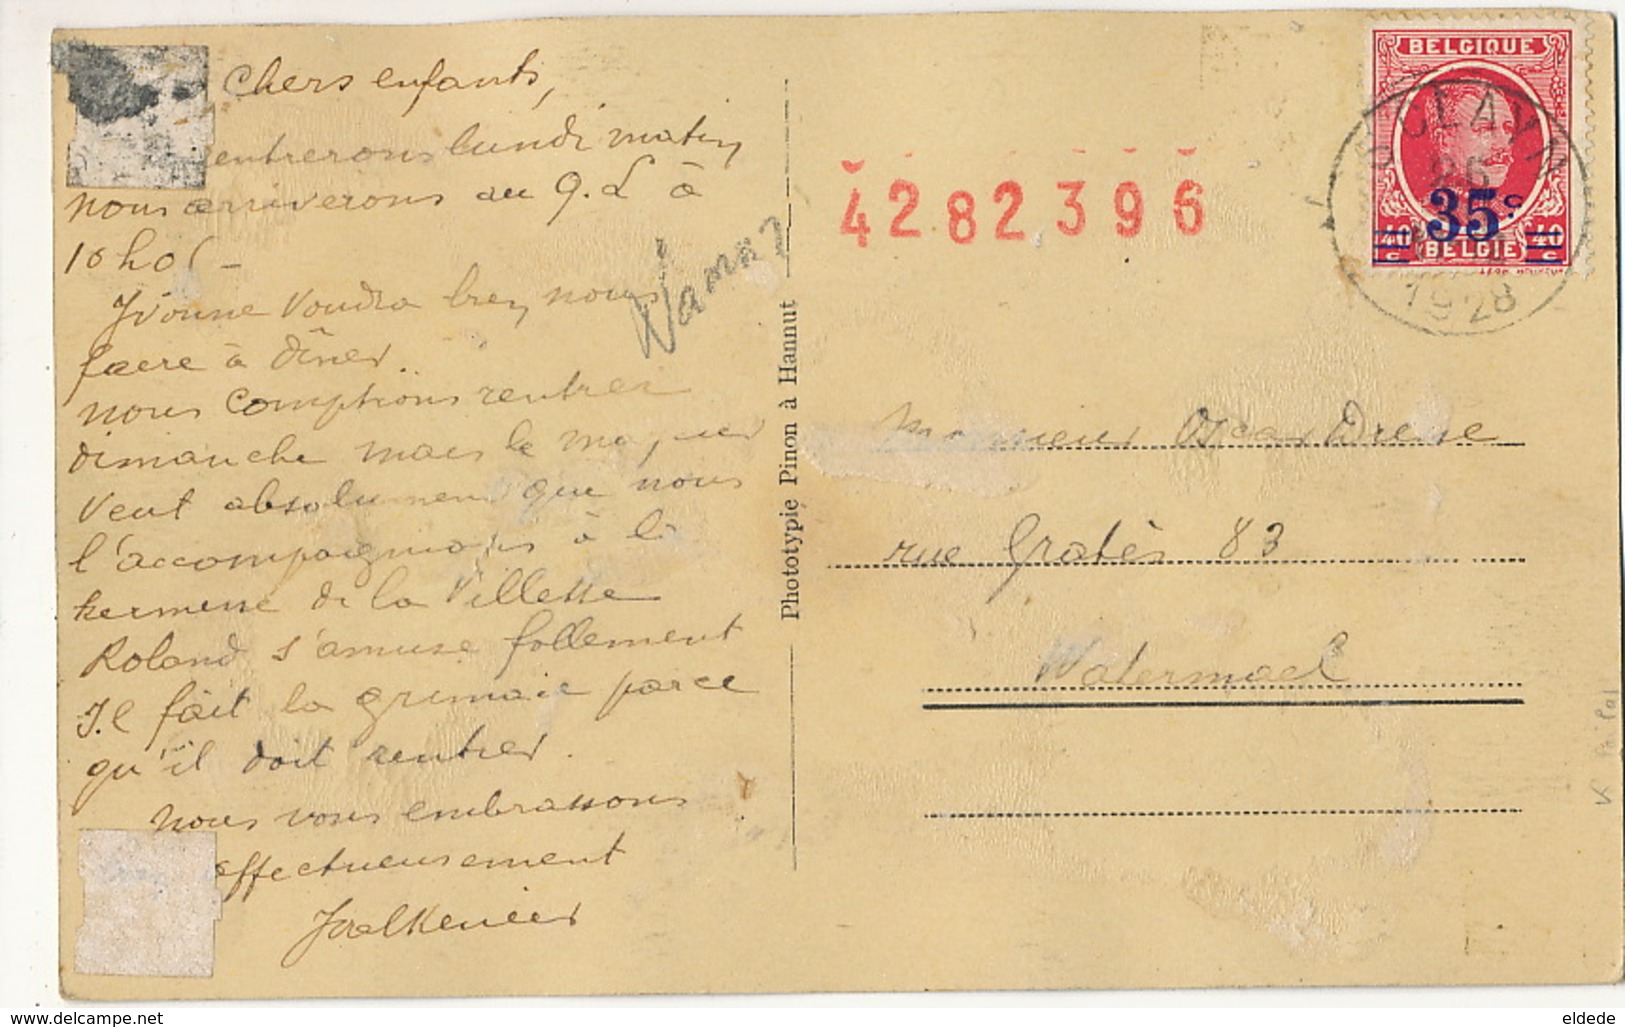 Chers enfants,
entrerons lundi matin
nous arriverons au Q. L à
10h05 -
Yvonne voudra bien nous
faire à dîner.
nous comptions rentrer
dimanche mais le
veut absolument que nous
l'accompagnions à la
kermesse de la Villette
Roland s'amuse follement
Il fait la grimace parce
qu'il doit rentrer.
nous vous embrassons
affectueusement
Namur
Phototypie Pinon à Hannut
4282396
BELGIQUE
35c
40 c BELGIE 40 c
SCLAYN
26
1928
Monsieur Oscar
rue Gratès 83
Watermael
eldede
www.delcampe.net